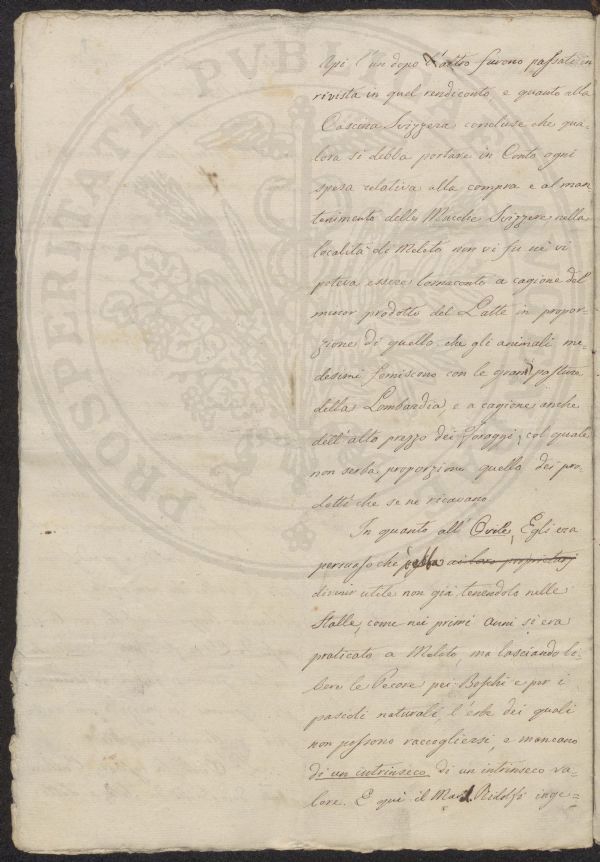 Api l'un dopo l'altro furono passati in
rivista in quel rendiconto e quanto alla
Cascina Svizzera concluse che qua-
lora si debba portare in Conto ogni
spesa relativa alla compra e al man
tenimento delle Vacche Svizzere nella
località di Meleto non vi fu nè vi
poteva essere tornaconto a cagione del
minor prodotto del Latte in propor-
zione di quello che gli animali me-
desimi forniscono con le grandi pasture
della Lombardia, e a cagione anche
dell'alto prezzo dei foraggi, col quale
non serba proporzione quello dei pro-
dotti che se ne ricavano
In quanto all'Ovile, Egli era
persuaso che ai loro proprietarj
divenir utile non già tenendolo nelle
Stalle, come nei primi anni si era
praticato a Meleto, ma lasciando li-
bere le Pecore pei Boschi e per i
pascoli naturali, l'erbe dei quali
non possono raccogliersi, e mancano
di un intrinseco di un intrinseco va-
lore. E qui il Mar. Ridolfi inge=
PROSPERITATI PUBLIC